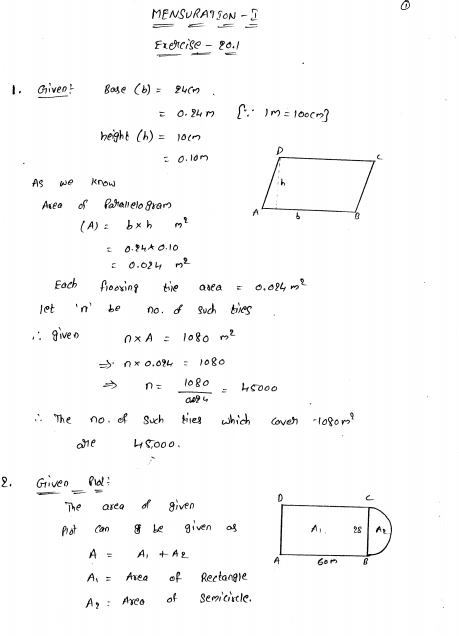 ①
MENSURATION - I
Exercise - 20.1
1. Given: Base (b) = 24cm.
= 0.24m [∵ 1m = 100cm]
height (h) = 10cm
= 0.10m
D C
h
A b B
As we know
Area of Parallelogram
(A) = b × h m²
= 0.24 × 0.10
= 0.024 m²
Each flooring tile area = 0.024 m²
let 'n' be no. of such tiles
∴ given n × A = 1080 m²
⇒ n × 0.024 = 1080
⇒ n = 1080/0.024 = 45000
∴ The no. of such tiles which cover 1080m²
are 45,000.
2. Given Plot:
The area of given
Plot can be given as
A = A₁ + A₂
A₁ = Area of Rectangle
A₂ = Area of Semicircle.
D C
A₁ 28 A₂
A 60m B